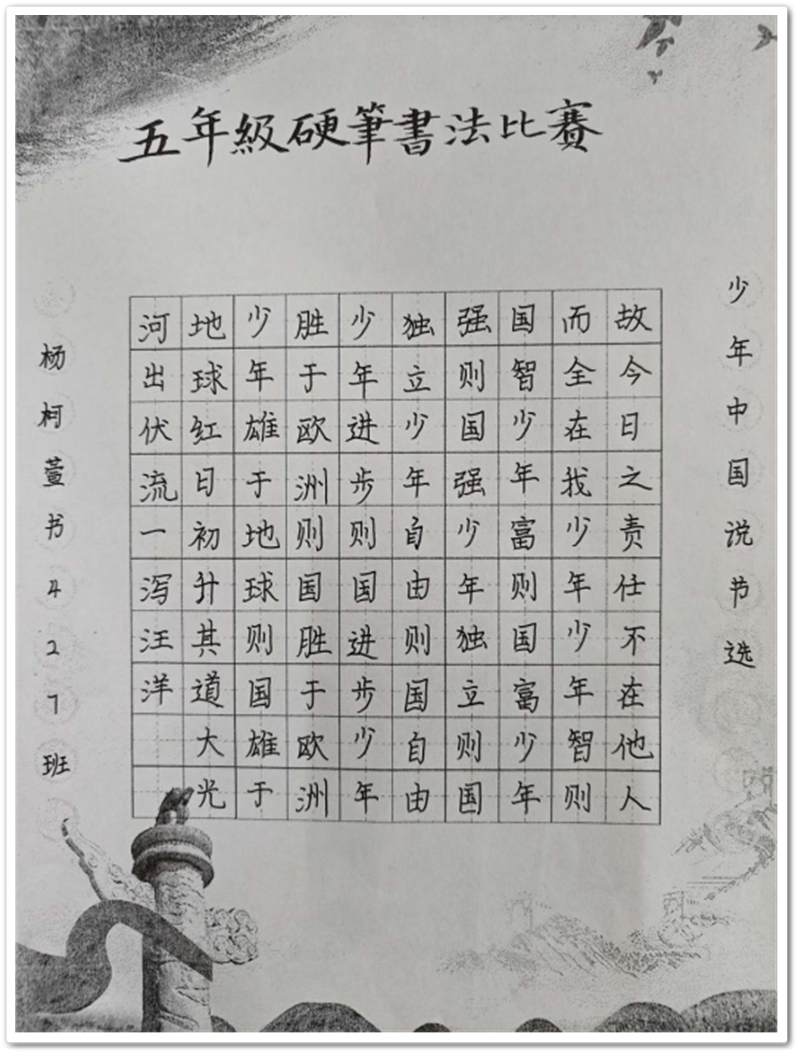 五年級硬筆書法比賽
少年中国说节选
故今日之责任不在他人
而全在我少年少年智则
国智少年富则国富少年
强则国强少年独立则国
独立少年自由则国自由
少年进步则国进步少年
胜于欧洲则国胜于欧洲
少年雄于地球则国雄于
地球红日初升其道大光
河出伏流一泻汪洋
杨柯萱书427班